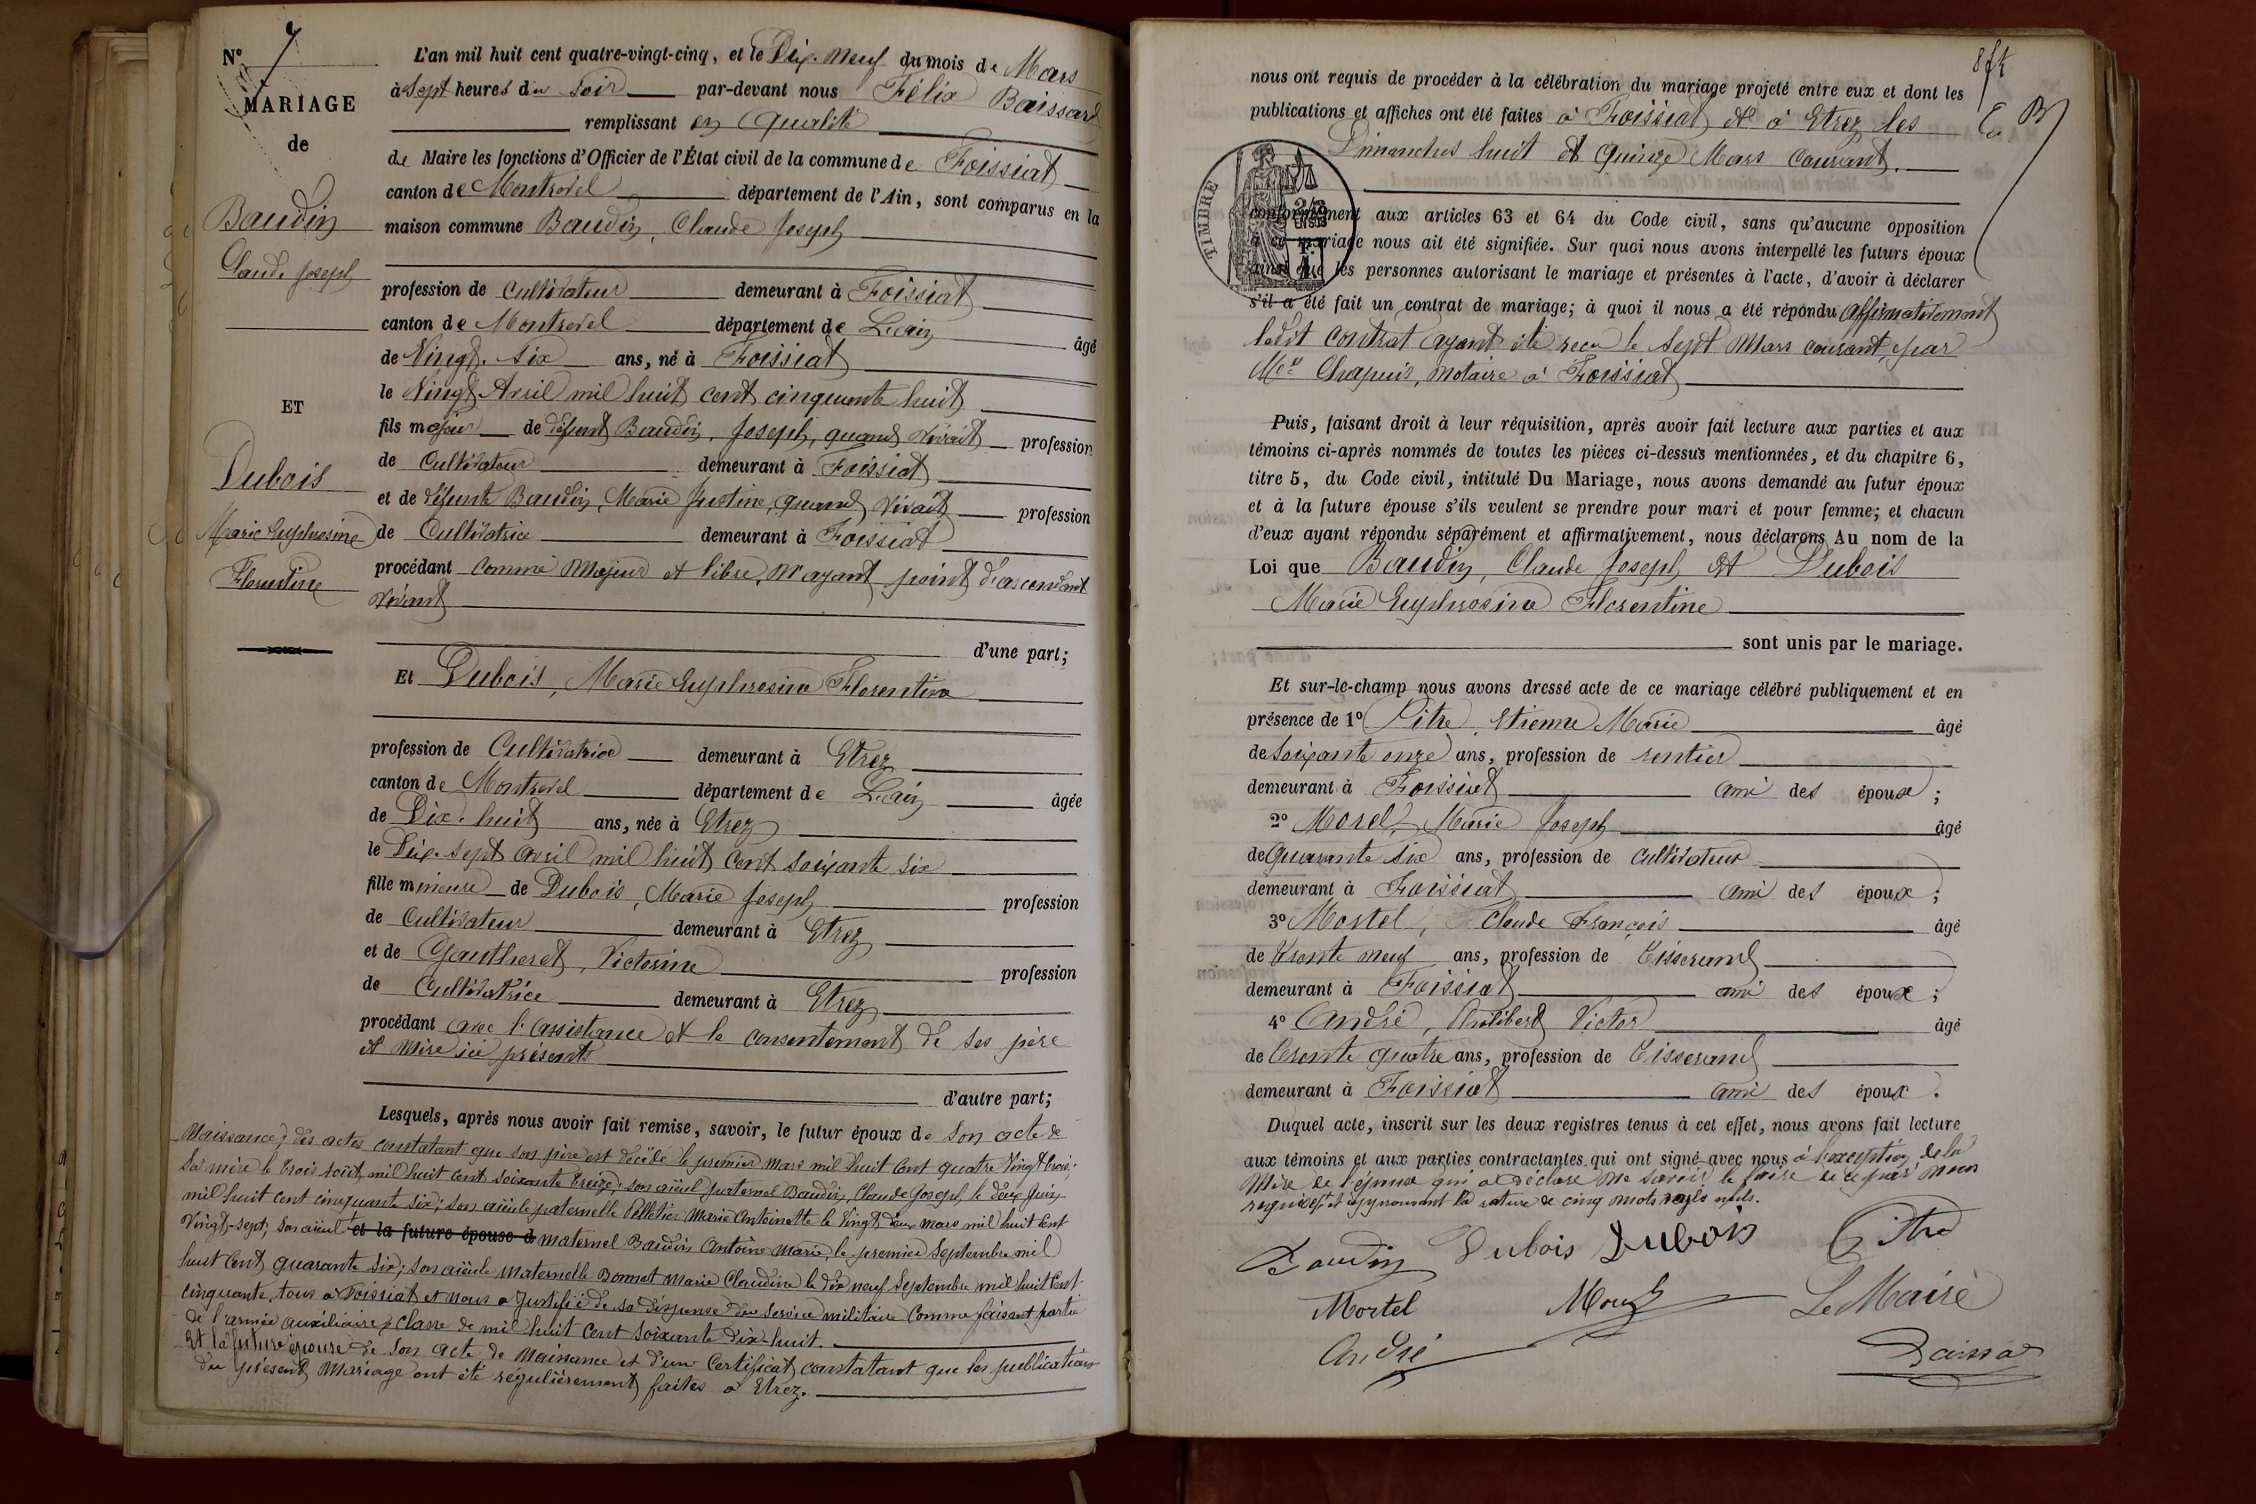 N° 7
MARIAGE
de
Baudin
Claude Joseph
ET
Dubois
Marie Euphrosine
Florentine
L'an mil huit cent quatre-vingt-cinq, et le Dix-neuf du mois de Mars
à Sept heures du Soir par-devant nous Félix Boissard
remplissant en qualité
de Maire les fonctions d'Officier de l'État civil de la commune de Foissiat
canton de Montrevel département de l'Ain, sont comparus en la
maison commune Baudin, Claude Joseph
profession de Cultivateur demeurant à Foissiat
canton de Montrevel département de L'ain âgé
de Vingt-six ans, né à Foissiat
le Vingt Avril mil huit cent cinquante huit
fils majeur de défunt Baudin, Joseph, quand vivait profession
de Cultivateur demeurant à Foissiat
et de défunte Baudin, Marie Justine, quand vivait profession
de Cultivatrice demeurant à Foissiat
procédant comme majeur et libre, n'ayant point d'ascendant
vivant
d'une part;
Et Dubois, Marie Euphrosine Florentine
profession de Cultivatrice demeurant à Etrez
canton de Montrevel département de L'ain âgée
de Dix-huit ans, née à Etrez
le Dix-sept avril mil huit cent soixante six
fille mineure de Dubois, Marie Joseph profession
de Cultivateur demeurant à Etrez
et de Gautheret, Victorine profession
de Cultivatrice demeurant à Etrez
procédant avec l'assistance et le consentement de ses père
et mère ici présents
d'autre part;
Lesquels, après nous avoir fait remise, savoir, le futur époux de son acte de
Naissance; des actes constatant que son père est décédé le premier mars mil huit cent quatre vingt trois;
sa mère le trois août mil huit cent soixante treize; son aïeul paternel Baudin, Claude Joseph, le deux Juin
mil huit cent cinquante six; son aïeule paternelle Pelletier Marie Antoinette le vingt deux mars mil huit cent
vingt-sept; son aïeul et la future épouse d maternel Baudin Antoine Marie, le premier Septembre mil
huit cent quarante six; son aïeule maternelle Bonnet Marie Claudine le dix neuf Septembre mil huit cent
cinquante, tous à Foissiat et nous a justifié de sa dispense du service militaire comme faisant partie
de l'armée auxiliaire, classe de mil huit cent soixante dix-huit.
Et la future épouse de son acte de naissance et d'un certificat constatant que les publications
du présent mariage ont été régulièrement faites à Etrez.
nous ont requis de procéder à la célébration du mariage projeté entre eux et dont les
publications et affiches ont été faites à Foissiat et à Etrez les
Dimanches huit et quinze Mars courant.
TIMBRE
conformément aux articles 63 et 64 du Code civil, sans qu'aucune opposition
à ce mariage nous ait été signifiée. Sur quoi nous avons interpellé les futurs époux
ainsi que les personnes autorisant le mariage et présentes à l'acte, d'avoir à déclarer
s'il a été fait un contrat de mariage; à quoi il nous a été répondu affirmativement
ledit contrat ayant été reçu le sept Mars courant, par
Chapuis, notaire à Foissiat
Puis, faisant droit à leur réquisition, après avoir fait lecture aux parties et aux
témoins ci-après nommés de toutes les pièces ci-dessus mentionnées, et du chapitre 6,
titre 5, du Code civil, intitulé Du Mariage, nous avons demandé au futur époux
et à la future épouse s'ils veulent se prendre pour mari et pour femme; et chacun
d'eux ayant répondu séparément et affirmativement, nous déclarons Au nom de la
Loi que Baudin, Claude Joseph et Dubois
Marie Euphrosine Florentine
sont unis par le mariage.
Et sur-le-champ nous avons dressé acte de ce mariage célébré publiquement et en
présence de 1° Pitre, Etienne Marie âgé
de soixante onze ans, profession de rentier
demeurant à Foissiat ami des époux;
2° Morel, Marie Joseph âgé
de quarante six ans, profession de Cultivateur
demeurant à Foissiat ami des époux;
3° Mortel, Claude François âgé
de trente neuf ans, profession de Tisserand
demeurant à Foissiat ami des époux;
4° André, Philibert Victor âgé
de trente quatre ans, profession de Tisserand
demeurant à Foissiat ami des époux.
Duquel acte, inscrit sur les deux registres tenus à cet effet, nous avons fait lecture
aux témoins et aux parties contractantes qui ont signé avec nous à l'exception de la
Mère de l'épouse qui a déclaré ne savoir le faire de ce par nous
requise, et approuvant la rature de cinq mots rayés nuls.
Baudin Dubois Dubois Pitre
Mortel Le Maire
André